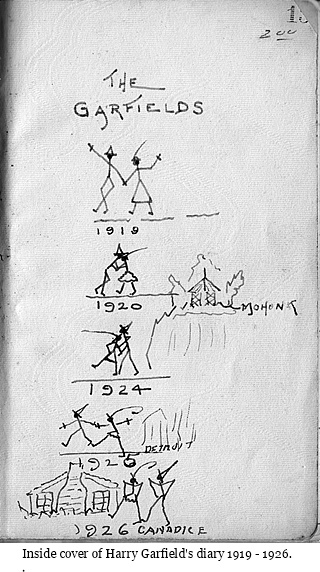 2 00
THE
GARFIELDS
1919
1920
MOHONK
1924
DETROIT
1926
1926 CANADICE
Inside cover of Harry Garfield's diary 1919 - 1926.
.